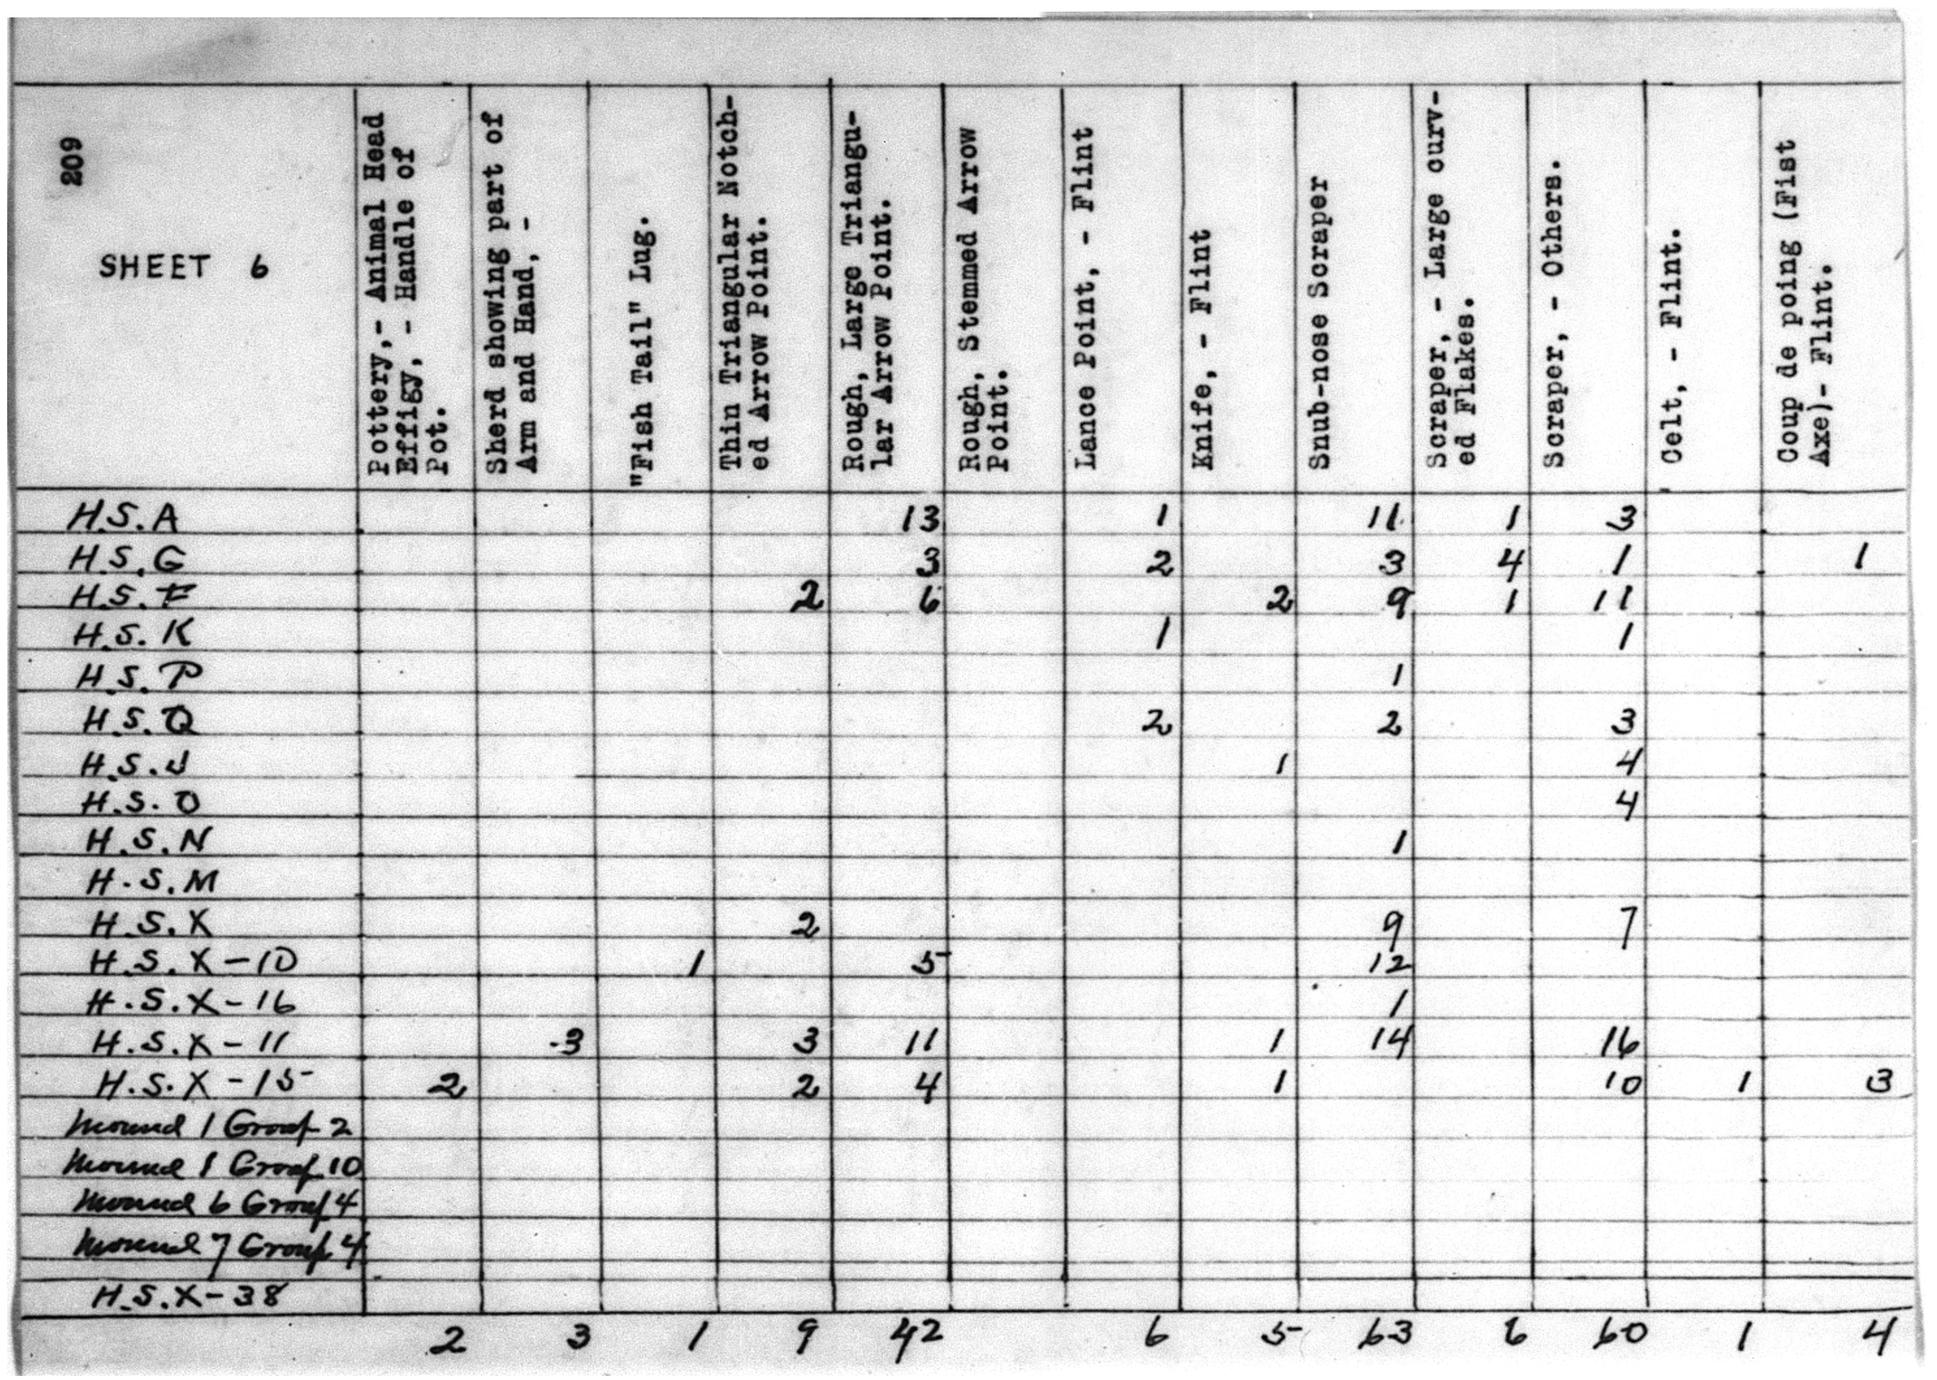 209
SHEET 6
Pottery,- Animal Head
Effigy, - Handle of
Pot.
Sherd showing part of
Arm and Hand, -
"Fish Tail" Lug.
Thin Triangular Notch-
ed Arrow Point.
Rough, Large Triangu-
lar Arrow Point.
Rough, Stemmed Arrow
Point.
Lance Point, - Flint
Knife, - Flint
Snub-nose Scraper
Scraper, - Large curv-
ed Flakes.
Scraper, - Others.
Celt, - Flint.
Coup de poing (Fist
Axe)- Flint.
H.S.A 13 1 11 1 3
H.S.G 3 2 3 4 1 1
H.S.F 2 6 2 9 1 11
H.S.K 1 1
H.S.P 1
H.S.Q 2 2 3
H.S.J 1 4
H.S.O 4
H.S.N 1
H.S.M
H.S.X 2 9 7
H.S.X-10 1 5 12
H.S.X-16 1
H.S.X-11 3 3 11 1 14 16
H.S.X-15 2 2 4 1 10 1 3
Mound 1 Group 2
Mound 1 Group 10
Mound 6 Group 4
Mound 7 Group 4
H.S.X-38
2 3 1 9 42 6 5 63 6 60 1 4